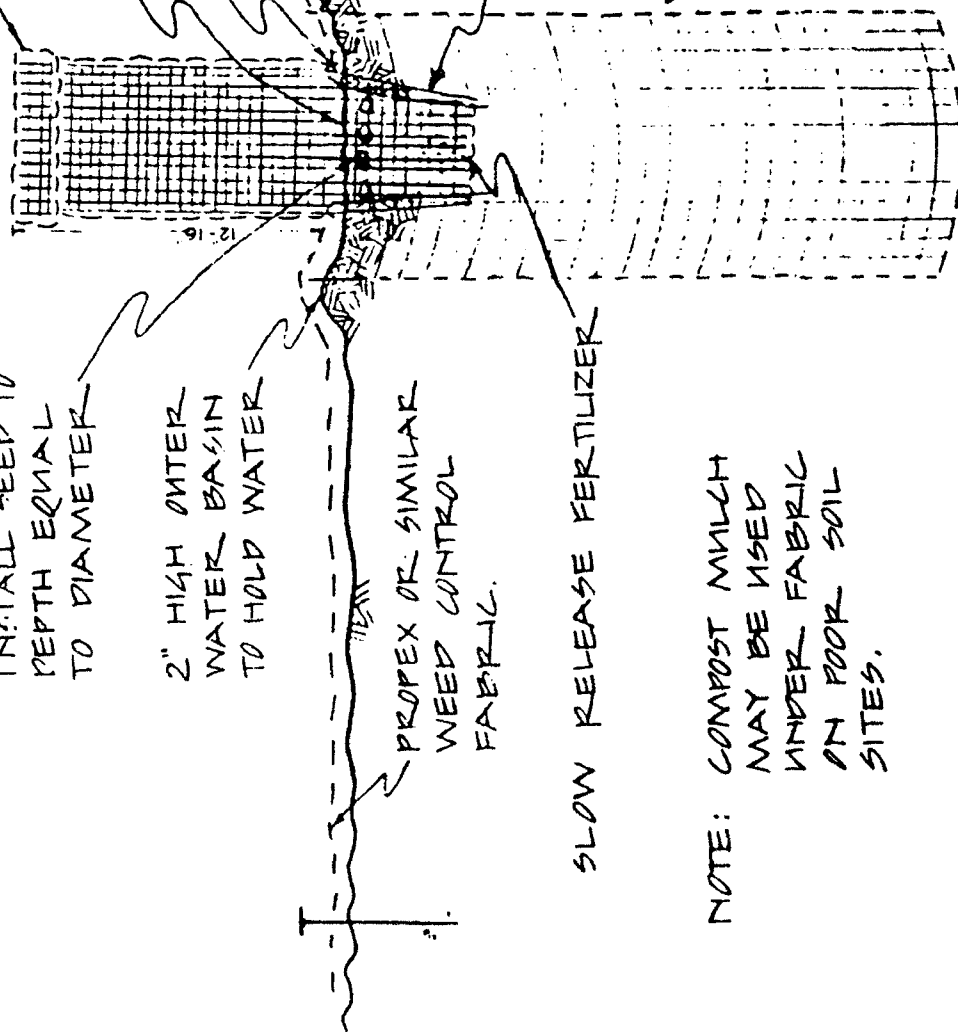 INSTALL SEED TO
DEPTH EQUAL
TO DIAMETER
2" HIGH OUTER
WATER BASIN
TO HOLD WATER
12"-16"
PROPEX OR SIMILAR
WEED CONTROL
FABRIC.
SLOW RELEASE FERTILIZER
NOTE: COMPOST MULCH
MAY BE USED
UNDER FABRIC
ON POOR SOIL
SITES.